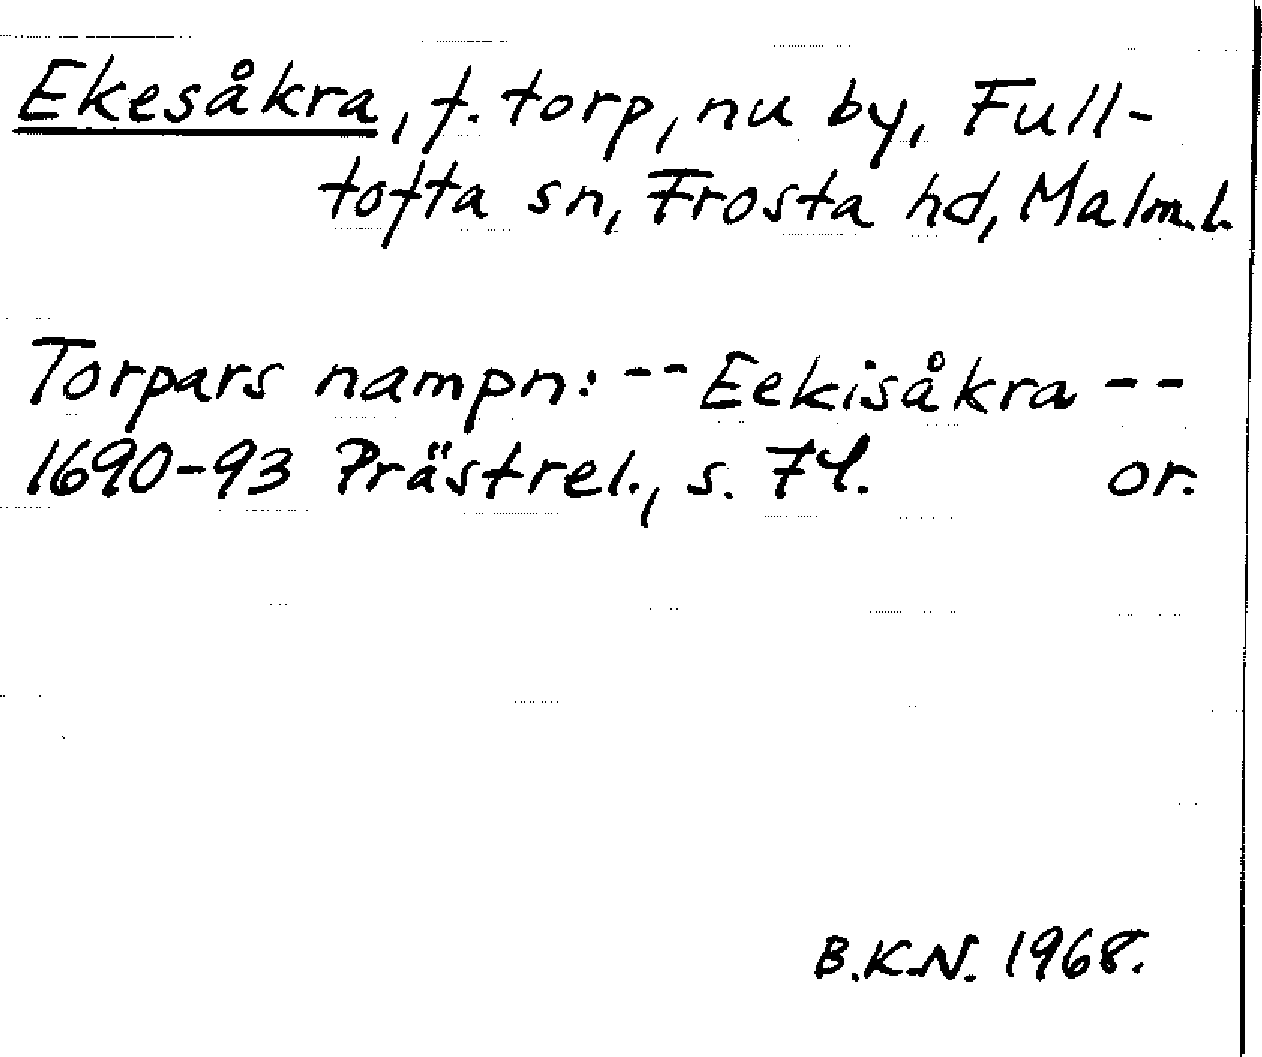 Ekesåkra, f. torp, nu by, Full-
tofta sn, Frosta hd, Malm.l.
Torpars nampn: -- Eekisåkra --
1690-93 Prästrel., s. 74. or.
B.K.N. 1968.